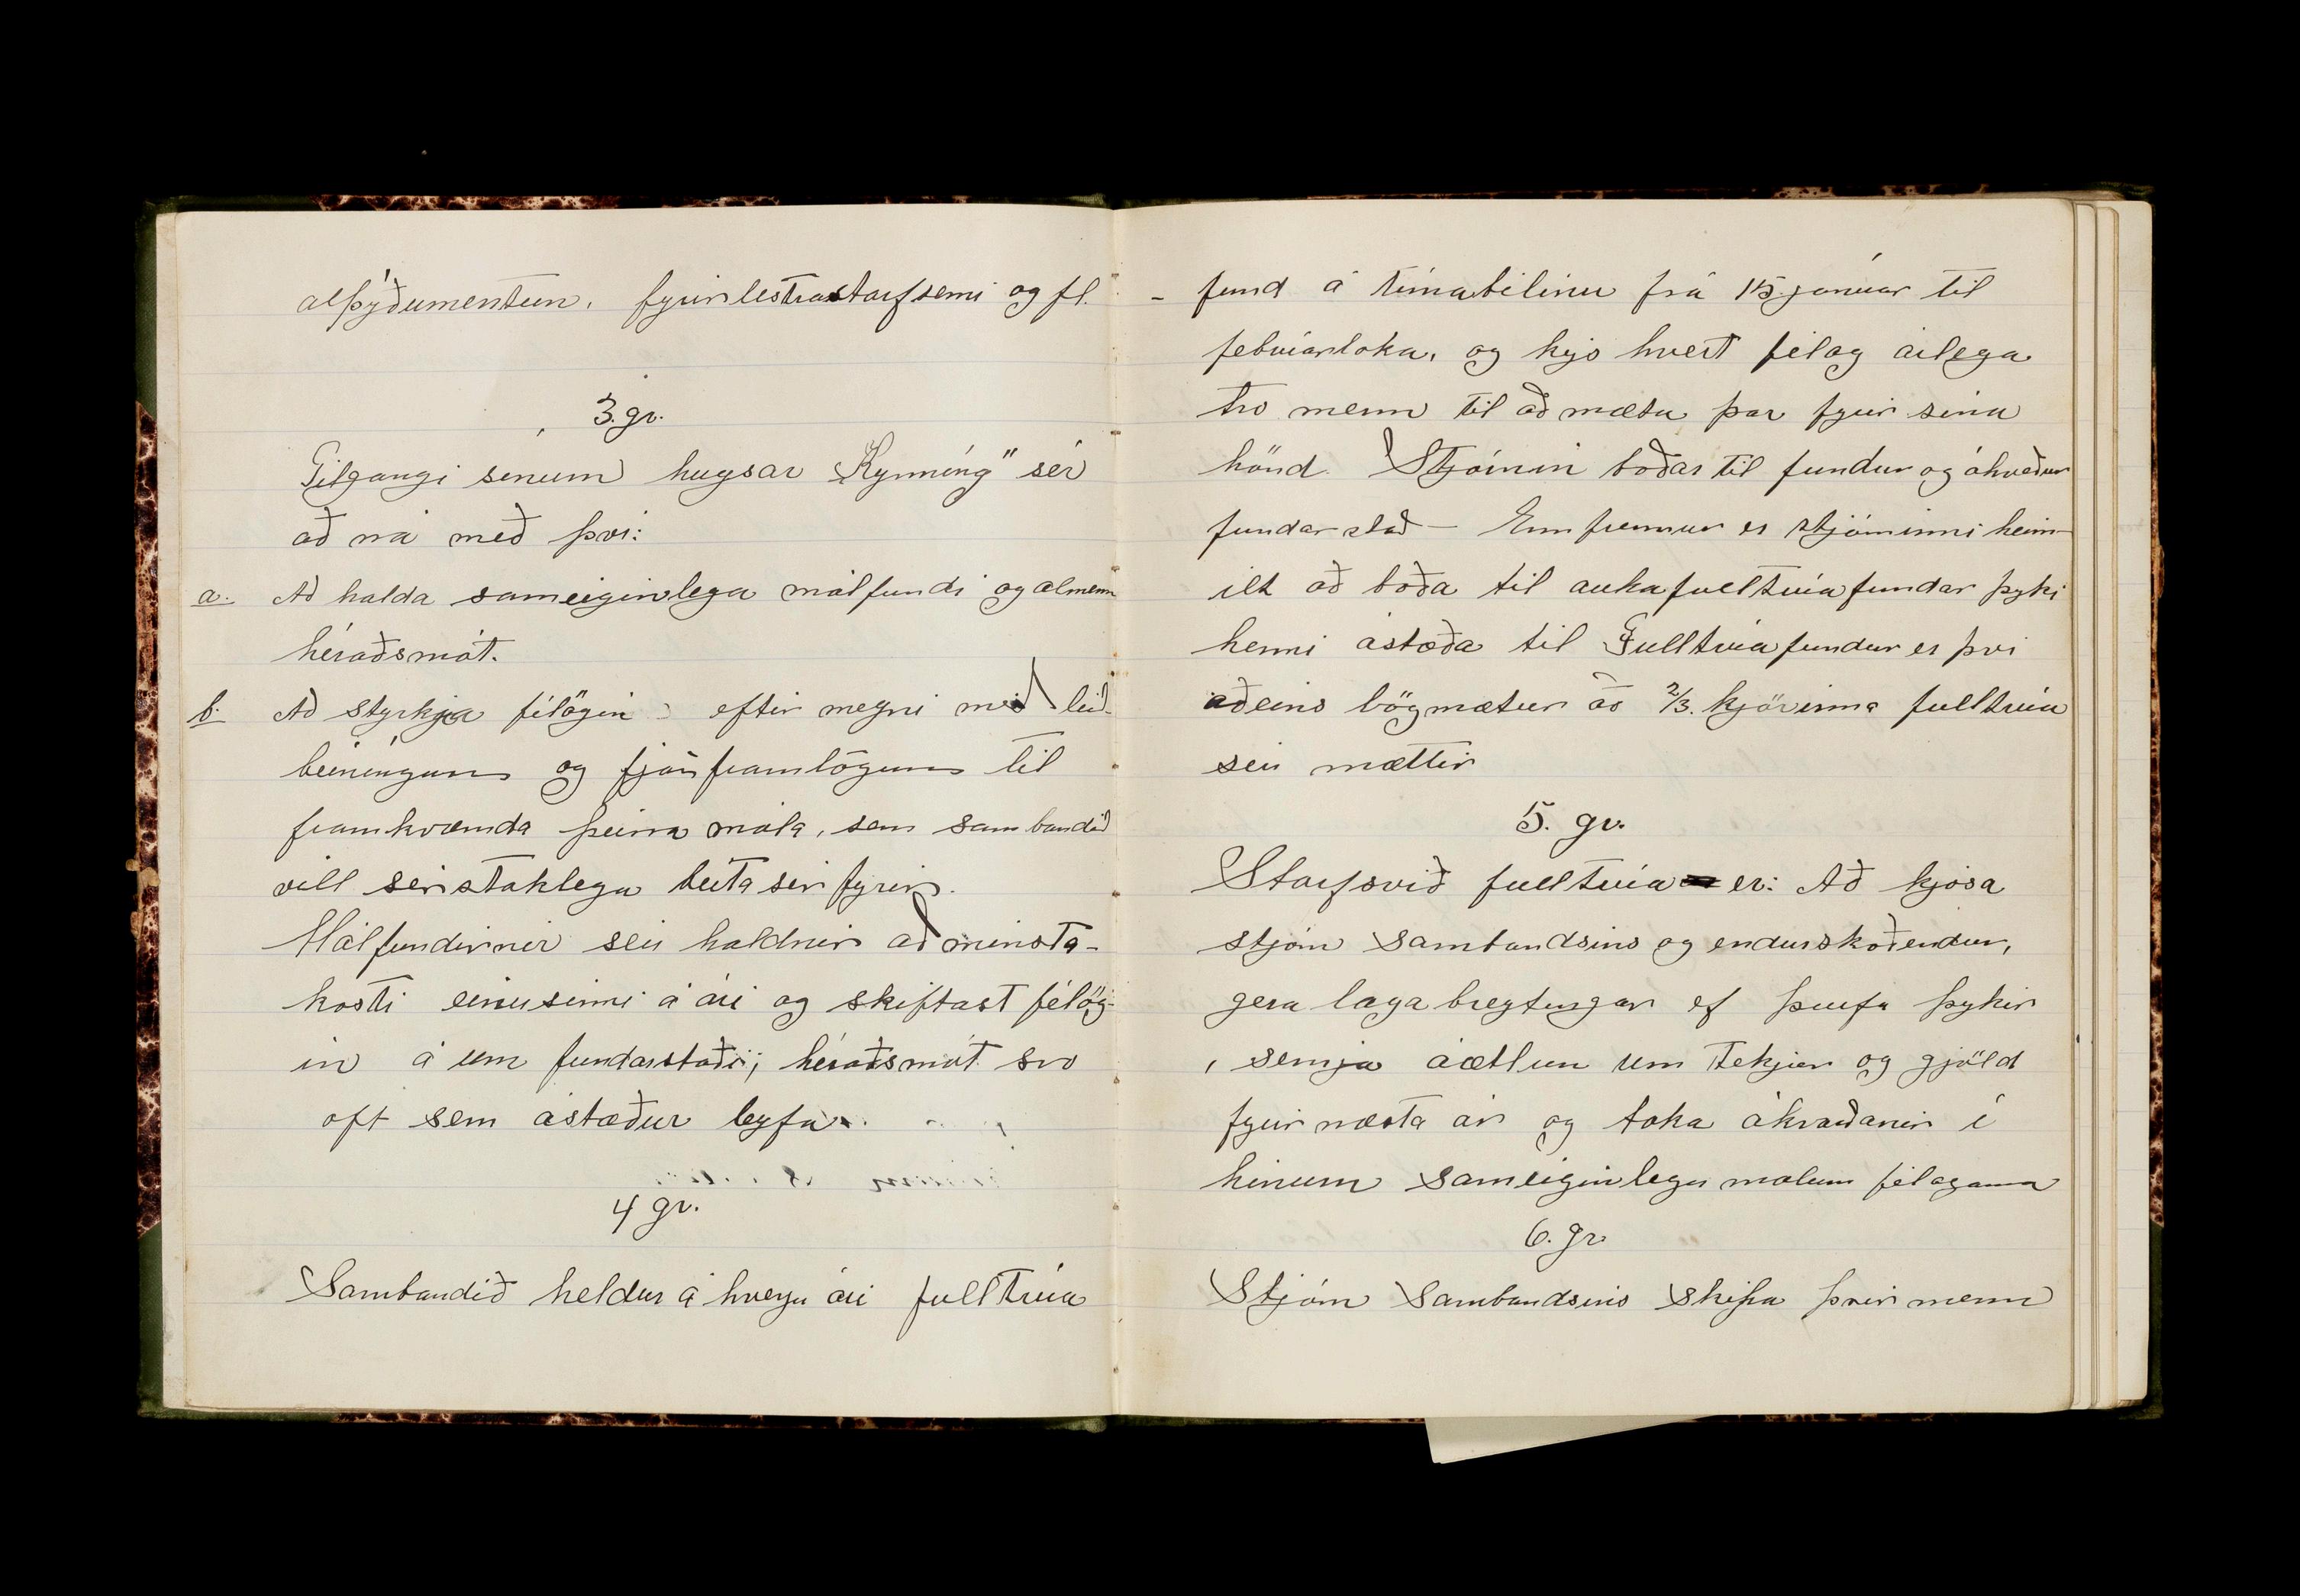 alþýðumentun, fyrirlestrastarfsemi og fl.
3. gr.
Tilgangi sínum hugsar „Kynning" sér
að ná með því:
a. Að halda sameiginlega málfundi og almenn
héraðsmót.
b. Að styrkja félögin eftir megni með leið-
beiningum og fjárframlögum til
framkvæmda þeirra mála, sem sambandið
vill sérstaklega beita sér fyrir.
Málfundirnir séu haldnir að minsta-
kosti einusinni á ári og skiftast félög-
in á um fundarstaði; héraðsmót svo
oft sem ástæður leyfa.
4 gr.
Sambandið heldur á hverju ári fulltrúa
- fund á tímabilinu frá 15. janúar til
febrúarloka, og kjós hvert félag árlega
tvo menn til að mæta þar fyrir sína
hönd. Stjórnin boðar til fundar og ákveður
fundarstað - Ennfremur er stjórninni heim-
ilt að boða til aukafulltrúafundar þyki
henni ástæða til Fulltrúafundur er því
aðeins lögmætur að 2/3. kjörinna fulltrúa
séu mættir
5. gr.
Starfsvið fulltrúa er: Að kjósa
stjórn Sambandsins og endurskoðendur,
gera lagabreytingar ef þurfa þykir
, semja áætlun um tekjur og gjöld
fyrir næsta ár og taka ákvarðanir í
hinum sameiginlegu málum félaganna
6. gr.
Stjórn Sambandsins skipa þrír menn